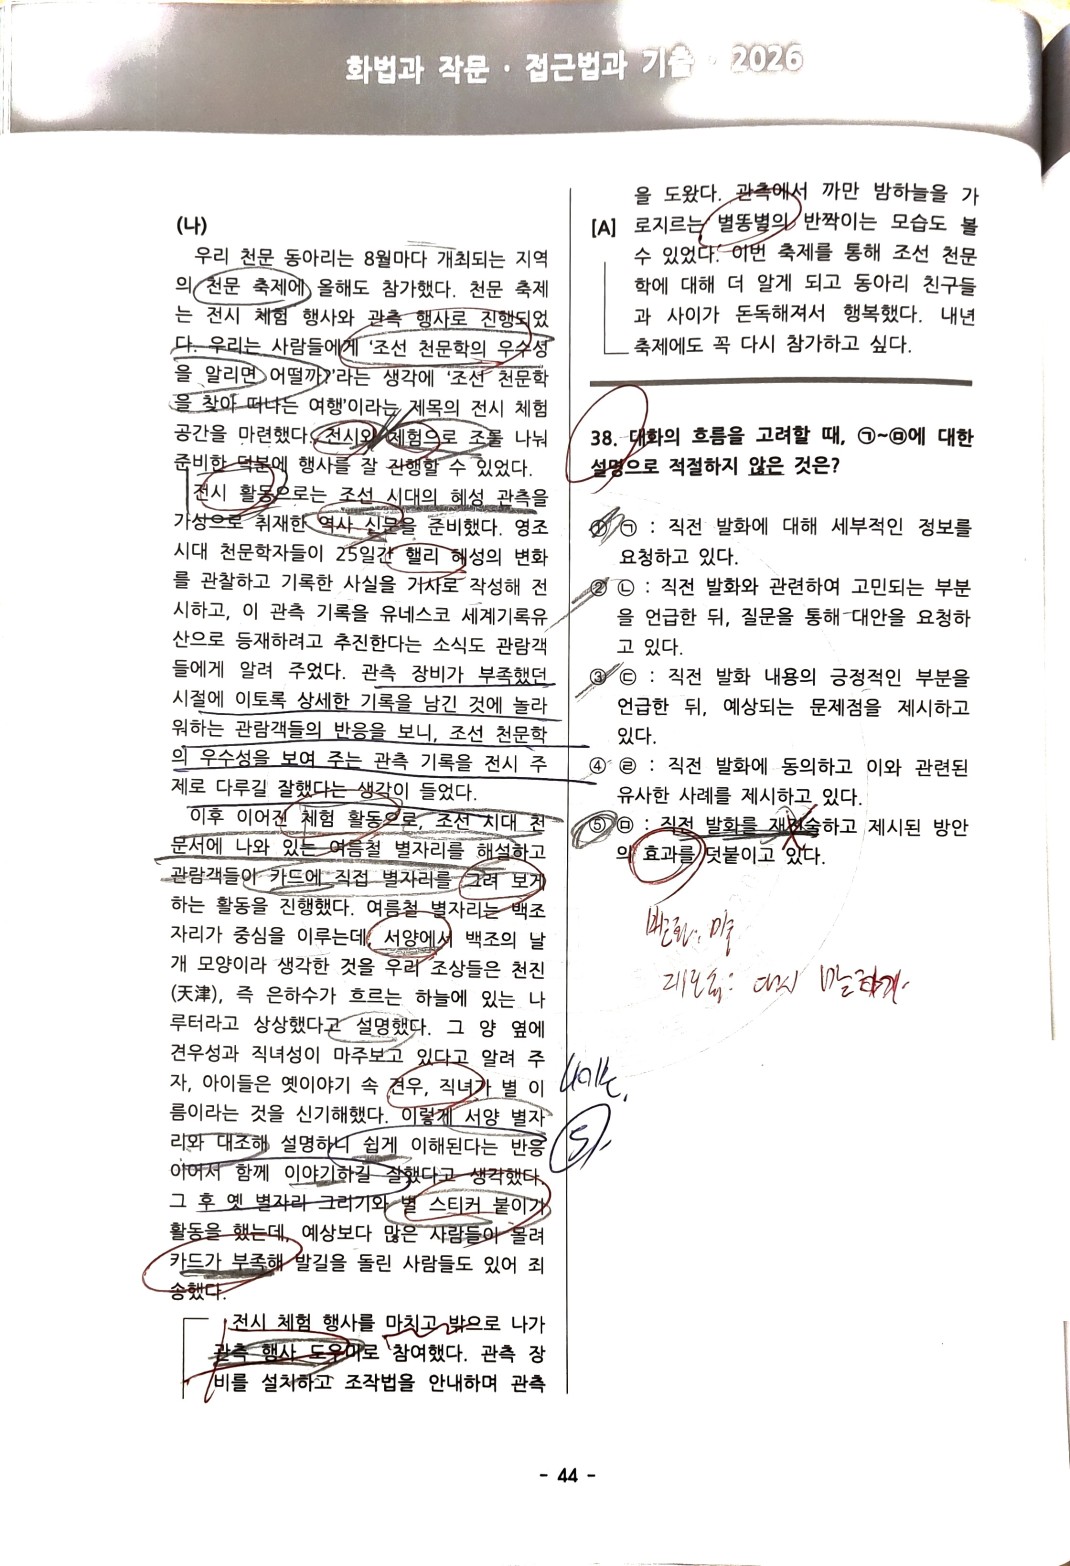 화법과 작문 · 접근법과 기출 · 2026
(나)
우리 천문 동아리는 8월마다 개최되는 지역
의 천문 축제에 올해도 참가했다. 천문 축제
는 전시 체험 행사와 관측 행사로 진행되었
다. 우리는 사람들에게 ‘조선 천문학의 우수성
을 알리면 어떨까?’라는 생각에 ‘조선 천문학
을 찾아 떠나는 여행’이라는 제목의 전시 체험
공간을 마련했다. 전시와 체험으로 조를 나눠
준비한 덕분에 행사를 잘 진행할 수 있었다.
전시 활동으로는 조선 시대의 혜성 관측을
가상으로 취재한 역사 신문을 준비했다. 영조
시대 천문학자들이 25일간 핼리 혜성의 변화
를 관찰하고 기록한 사실을 기사로 작성해 전
시하고, 이 관측 기록을 유네스코 세계기록유
산으로 등재하려고 추진한다는 소식도 관람객
들에게 알려 주었다. 관측 장비가 부족했던
시절에 이토록 상세한 기록을 남긴 것에 놀라
워하는 관람객들의 반응을 보니, 조선 천문학
의 우수성을 보여 주는 관측 기록을 전시 주
제로 다루길 잘했다는 생각이 들었다.
이후 이어진 체험 활동으로, 조선 시대 천
문서에 나와 있는 여름철 별자리를 해설하고
관람객들이 카드에 직접 별자리를 그려 보게
하는 활동을 진행했다. 여름철 별자리는 백조
자리가 중심을 이루는데, 서양에서 백조의 날
개 모양이라 생각한 것을 우리 조상들은 천진
(天津), 즉 은하수가 흐르는 하늘에 있는 나
루터라고 상상했다고 설명했다. 그 양 옆에
견우성과 직녀성이 마주보고 있다고 알려 주
자, 아이들은 옛이야기 속 견우, 직녀가 별 이
름이라는 것을 신기해했다. 이렇게 서양 별자
리와 대조해 설명하니 쉽게 이해된다는 반응
이어서 함께 이야기하길 잘했다고 생각했다.
그 후 옛 별자리 그리기와 별 스티커 붙이기
활동을 했는데, 예상보다 많은 사람들이 몰려
카드가 부족해 발길을 돌린 사람들도 있어 죄
송했다.
전시 체험 행사를 마치고 밖으로 나가
관측 행사 도우미로 참여했다. 관측 장
비를 설치하고 조작법을 안내하며 관측
을 도왔다. 관측에서 까만 밤하늘을 가
[A] 로지르는 별똥별의 반짝이는 모습도 볼
수 있었다. 이번 축제를 통해 조선 천문
학에 대해 더 알게 되고 동아리 친구들
과 사이가 돈독해져서 행복했다. 내년
축제에도 꼭 다시 참가하고 싶다.
38. 대화의 흐름을 고려할 때, ㉠~㉤에 대한
설명으로 적절하지 않은 것은?
① ㉠ : 직전 발화에 대해 세부적인 정보를
요청하고 있다.
② ㉡ : 직전 발화와 관련하여 고민되는 부분
을 언급한 뒤, 질문을 통해 대안을 요청하
고 있다.
③ ㉢ : 직전 발화 내용의 긍정적인 부분을
언급한 뒤, 예상되는 문제점을 제시하고
있다.
④ ㉣ : 직전 발화에 동의하고 이와 관련된
유사한 사례를 제시하고 있다.
⑤ ㉤ : 직전 발화를 재진술하고 제시된 방안
의 효과를 덧붙이고 있다.
재진술: 다시 말하기.
5
- 44 -